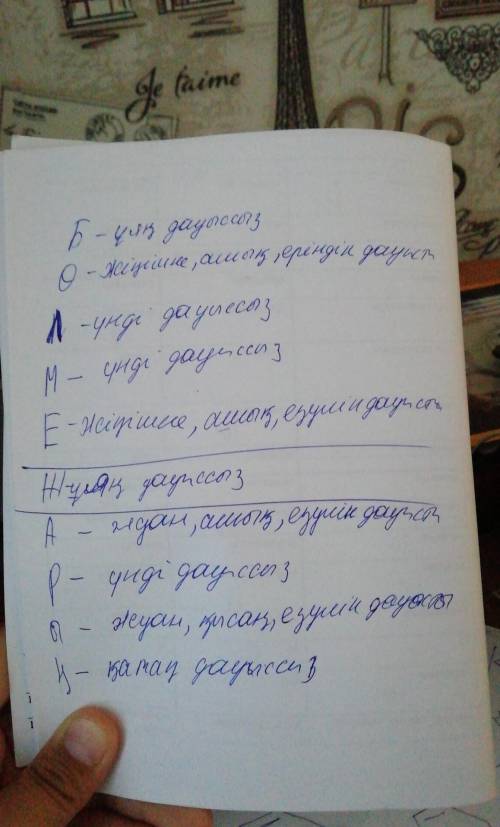 Je t'aime
Б - ұяң дауыссыз
Ө - жіңішке, ашық, еріндік дауысты
Л - үнді дауыссыз
М - үнді дауыссыз
Е - жіңішке, ашық, езулік дауысты
Ж - ұяң дауыссыз
А - жуан, ашық, езулік дауысты
Р - үнді дауыссыз
Ы - жуан, қысаң, езулік дауысты
Қ - қатаң дауыссыз